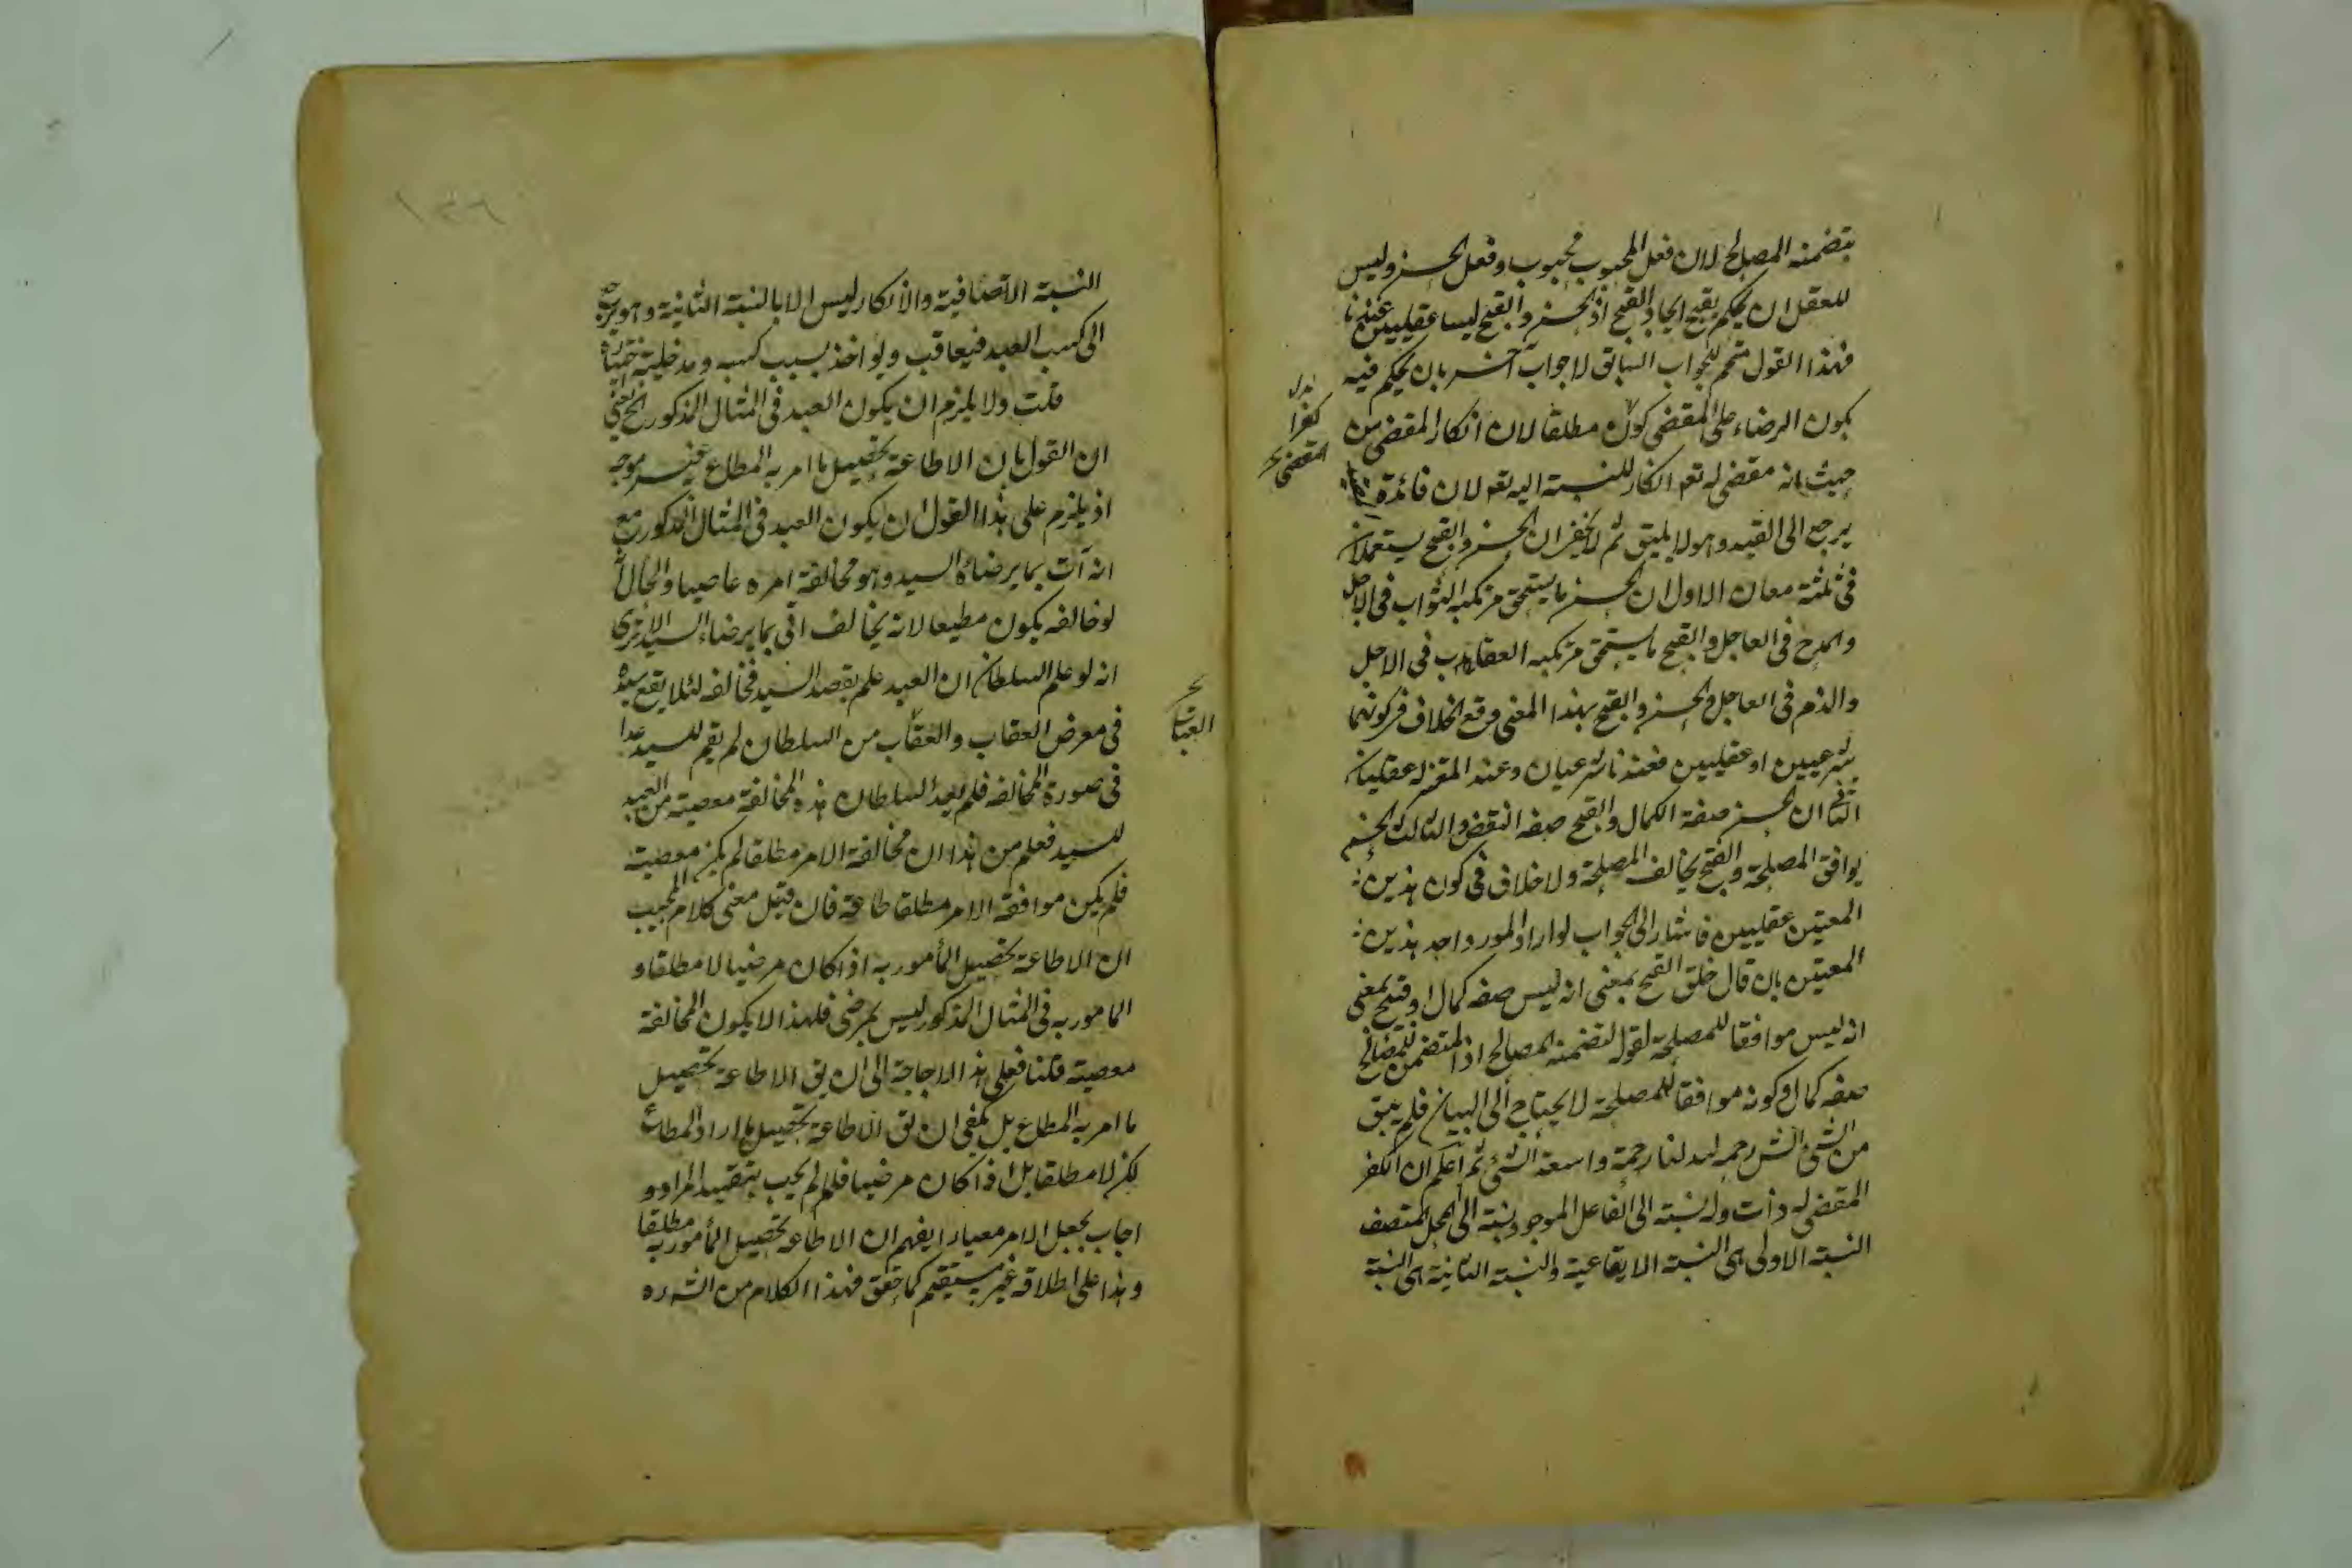 يتضمنه المصالح لان فعل المحبوب محبوب وفعل الحسن وليس
للعقل ان يحكم بقبح ايجاد القبح اذ الحسن والقبح ليسا عقليين عندنا
فهذا القول متمم للجواب السابق لا جواب آخر بان يحكم فيه
بكون الرضاء على المقضى كون مطلقا لان انكار المقضى من
حيث انه مقضى له تعم انكار للنسبة اليه تعم لان فائدة
يرجع الى القيد وهو لا يليق ثم لا يخفى ان الحسن والقبح يستعملان
فى ثلثة معان الاول ان الحسن ما يستحق مرتكبه الثواب فى الاجل
والمدح فى العاجل والقبح ما يستحق مرتكبه العقاب فى الاجل
والذم فى العاجل والحسن والقبح بهذا المعنى وقع الخلاف فى كونهما
شرعيين او عقليين فعندنا شرعيان وعند المعتزلة عقليان
الثانى ان الحسن صفة الكمال والقبح صفه النقض والثالث الحسن
يوافق المصلحة والقبح يخالف المصلحة ولا خلاف فى كون هذين
المعنيين عقليين فاشار الى الجواب لو اراد المورد احد هذين
المعنيين بان قال خلق القبح بمعنى انه ليس صفه كمال او قبح بمعنى
انه ليس موافقا للمصلحة لقوله لتضمنه المصالح اذ المتضمن للمصالح
صفه كمال وكونه موافقا للمصلحة لا يحتاج الى البيان فلم يبق
من الشئ الشر رحمه الله لنا رحمة واسعة الشئ ثم اعلم ان الكفر
المقضى له ذات وله نسبة الى الفاعل الموجود ونسبة الى المحل المتصف
النسبة الاولى هى النسبة الايقاعية والنسبة الثانية هى النسبة
كفرا
المقضى
١٢٦
النسبة الاتصافية والانكار ليس الا بالنسبة الثانية وهو يرجع
الى كسب العبد فيعاقب ويواخذ بسبب كسبه ومدخلية اختياره
قلت ولا يلزم ان يكون العبد فى المثال المذكور الخ
ان القول بان الاطاعة تحصيل ما امر به المطاع غير موجه
اذ يلزم على هذا القول ان يكون العبد فى المثال المذكور مع
انه آت بما يرضاه السيد وهو مخالفة امره عاصيا والحال انه
لو خالفه يكون مطيعا لانه يخالف اتى بما يرضاه السيد الا يرى
انه لو علم السلطان ان العبد علم بقصد السيد فخالفه لئلا يقع سيده
فى معرض العقاب والعقاب من السلطان لم يقم للسيد عذرا
فى صورة المخالفه فلم يعد السلطان هذه المخالفة معصية من العبد
للسيد فعلم من هذا ان مخالفة الامر مطلقا لم يكن معصية
فلم يكن موافقة الامر مطلقا طاعة فان قيل معنى كلام المجيب
ان الاطاعة تحصيل المأمور به اذا كان مرضيا لا مطلقا و
المامور به فى المثال المذكور ليس بمرضى فلهذا لا يكون المخالفة
معصية قلنا فعلى هذا لا حاجة الى ان يق الاطاعة تحصيل
ما امر به المطاع بل يكفى ان يق الاطاعة تحصيل ما اراد المطاع
لكن لا مطلقا بل اذا كان مرضيا فلم لم يجب بتقييد المراد و
اجاب بجعل الامر معيارا يفهم ان الاطاعه تحصيل المأمور به مطلقا
وهذا على اطلاقه غير مستقيم كما حقق فهذا الكلام من الش ره
العتاب